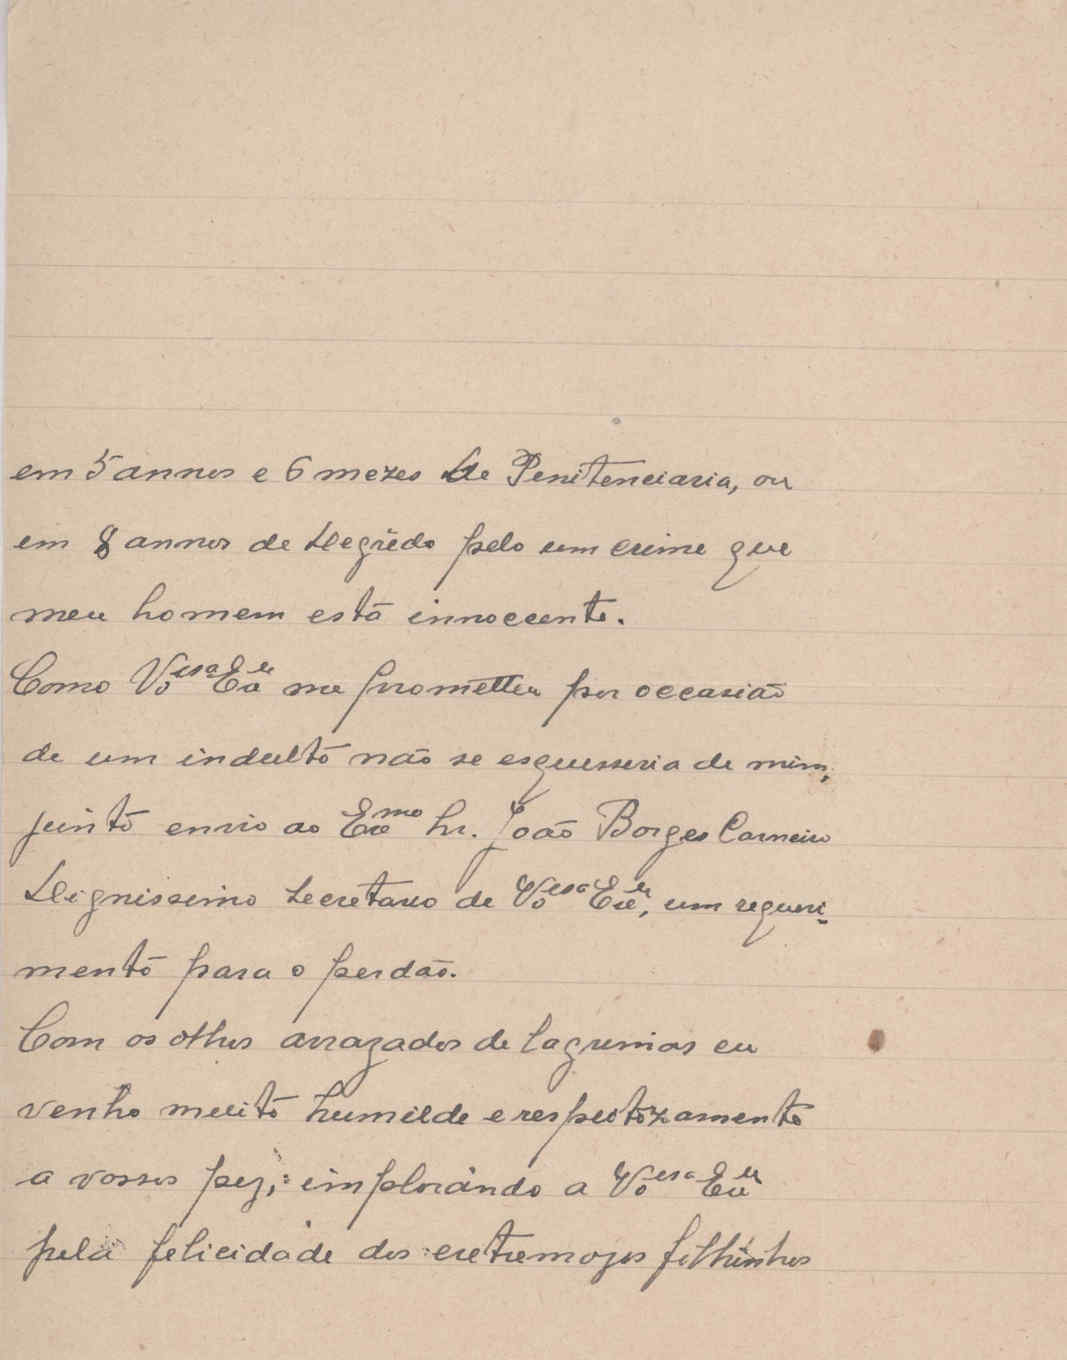 em 5 annos e 6 mezes de Penitenciaria, ou
em 8 annos de Degrêdo pelo um crime que
meu homem está innoccente.
Como Vo^ssa Ex^cia me prometteu por occasião
de um indultō não se esquesseria de mim,
juntō envio ao Ex^mo Sr. João Borges Carneiro
Dignissimo Secretario de Vo^ssa Ex^cia, um requeri-
mentō para o perdão.
Com os olhos arrazados de lagrimas eu
venho muitō humilde e respeitozamente
a vossos pez; implorando a Vo^ssa Ex^cia
pela felicidade dos extremozos filhinhos